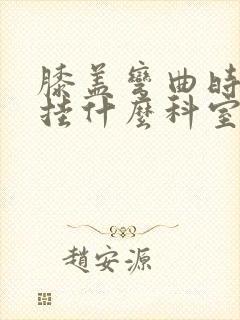 膝盖弯曲时
挂什麽科室
趙安源